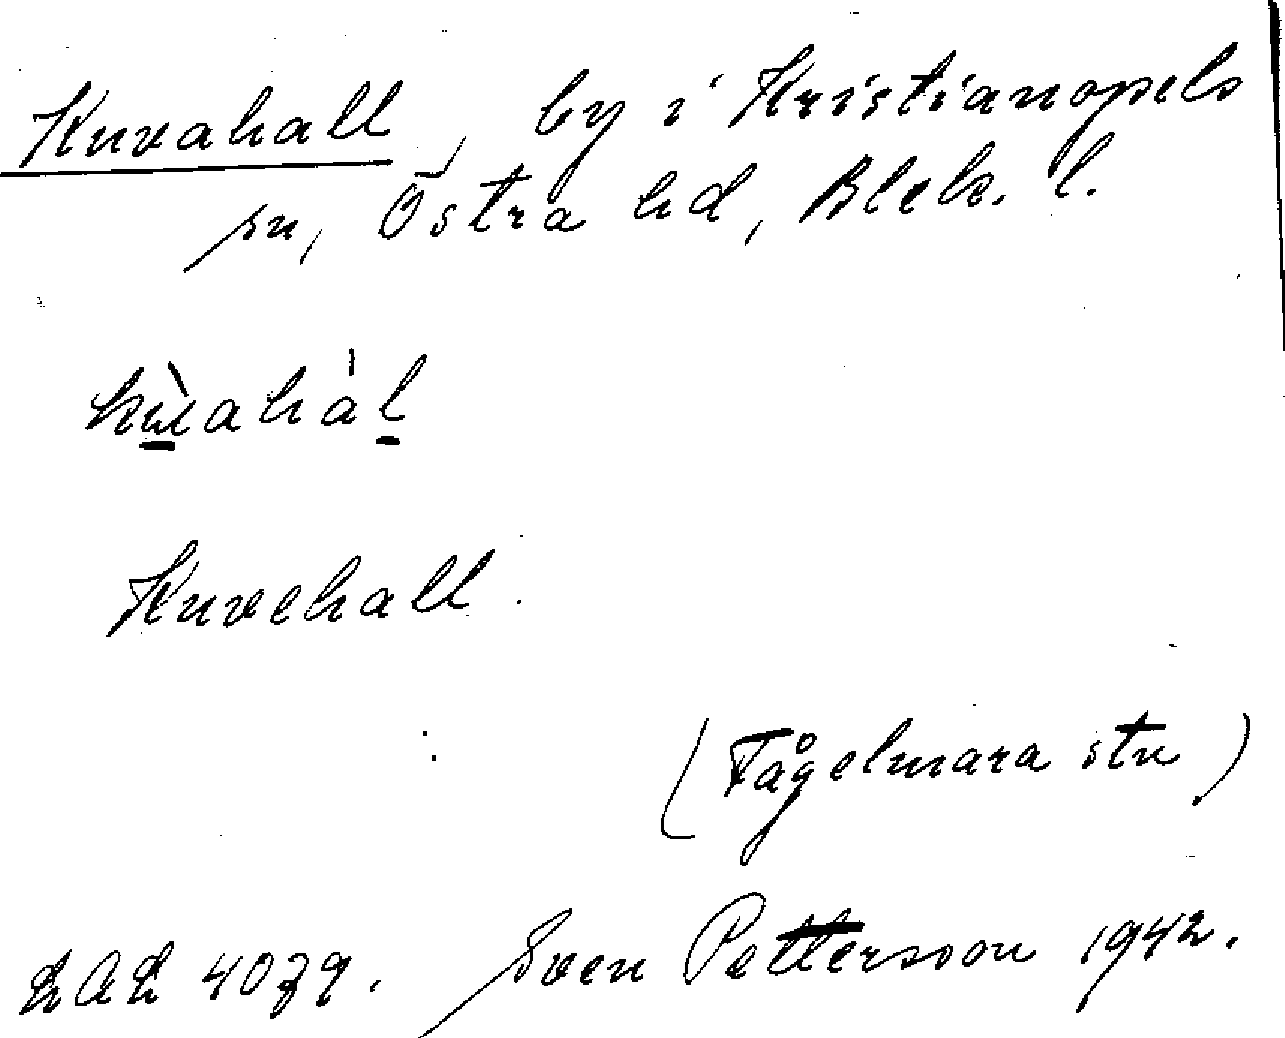 Kuvahall, by i Kristianopels
sn, Östra hd, Blek. l.
Kuvehall.
(Fågelmara stn)
LAL 4079. Sven Pettersson 1942.